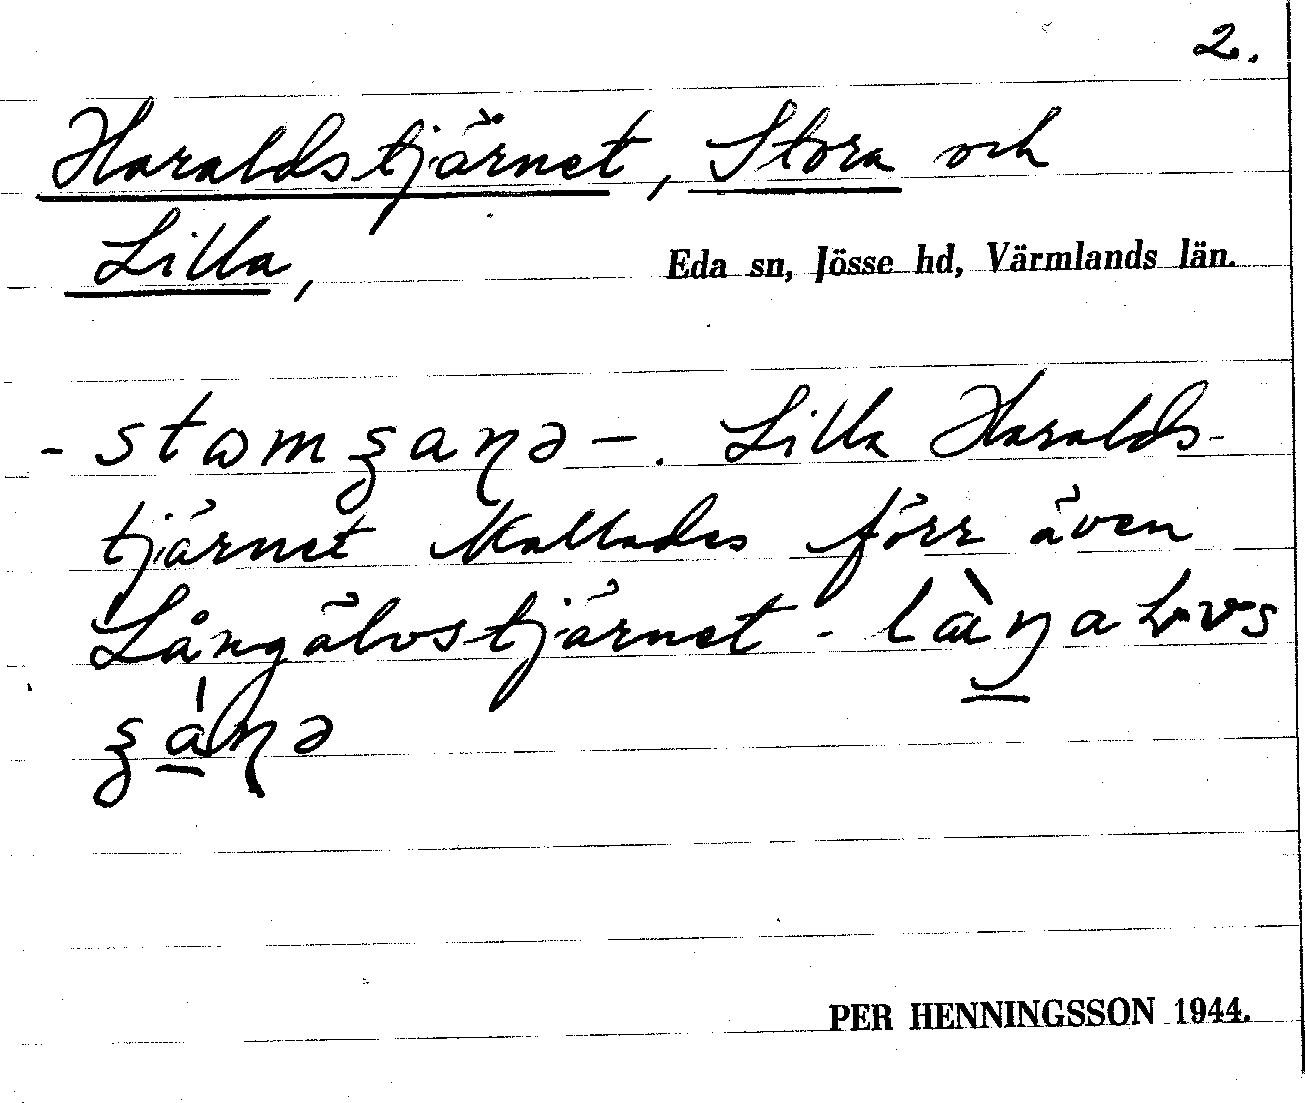 2.
Haraldstjärnet, Stora och
Lilla,
Eda sn, Jösse hd, Värmlands län.
- stamʒaɳə – . Lilla Haralds-
tjärnet kallades förr även
Långälvstjärnet -
PER HENNINGSSON 1944.